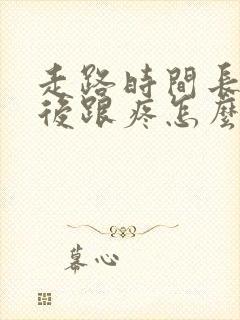 走路時間長
後跟疼怎麼
幕心